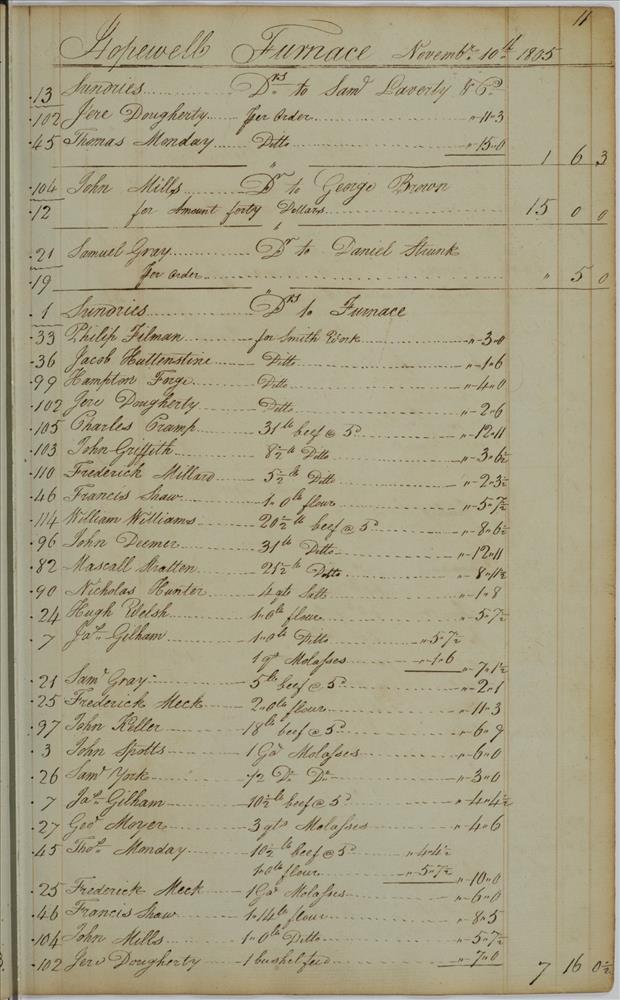 11
Hopewell Furnace Novembr. 10th 1805
13 Sundries Drs to Saml Laverty & Co
102 Jere Dougherty per Order " 11 " 3
45 Thomas Monday Ditto " 15 " 0 1 6 3
104 John Mills Dr to George Brown
12 for Amount forty Dollars 15 0 0
21 Samuel Gray Dr to Daniel Strunk
19 per order " 5 0
1 Sundries Drs to Furnace
33 Philip Filman for Smith Work " 3 " 0
36 Jacob Huttenstine Ditto " 1 " 6
99 Hampton Forge Ditto " 4 " 0
102 Jere Dougherty Ditto " 2 " 6
105 Charles Cramp 31 lb beef @ 5d " 12 " 11
103 John Griffith 8½ lb Ditto " 3 " 6½
110 Frederick Millard 5½ lb Ditto " 2 " 3½
46 Francis Shaw 1 " 0 lb flour " 5 " 7½
114 William Williams 20½ lb beef @ 5d " 8 " 6½
96 John Deemer 31 lb Ditto " 12 " 11
82 Mascall Stratten 21½ lb Ditto " 8 " 11½
90 Nicholas Hunter 4 qts Salt " 1 " 8
24 Hugh Welsh 1 " 0 lb flour " 5 " 7½
7 Jas Gilham 1 " 0 lb Ditto " 5 " 7½
1 qt Molasses " 1 " 6 " 7 " 1½
21 Saml Gray 5 lb beef @ 5d " 2 " 1
25 Frederick Meck 2 " 0 lb flour " 11 " 3
97 John Keller 18 lb beef @ 5d " 6 " 9
3 John Spotts 1 Gal Molasses " 6 " 0
26 Saml York ½ Do Do " 3 " 0
7 Jas Gilham 10½ lb beef @ 5d " 4 " 4½
27 Geo Moyer 3 qts Molasses " 4 " 6
45 Thos Monday 10½ lb beef @ 5d " 4 " 4½
1 " 0 lb flour " 5 " 7½ " 10 " 0
25 Frederick Meck 1 Gal Molasses " 6 " 0
46 Francis Shaw 1 " 14 lb flour " 8 " 5
104 John Mills 1 " 0 lb Ditto " 5 " 7½
102 Jere Dougherty 1 bushel feed " 7 " 0 7 16 0½